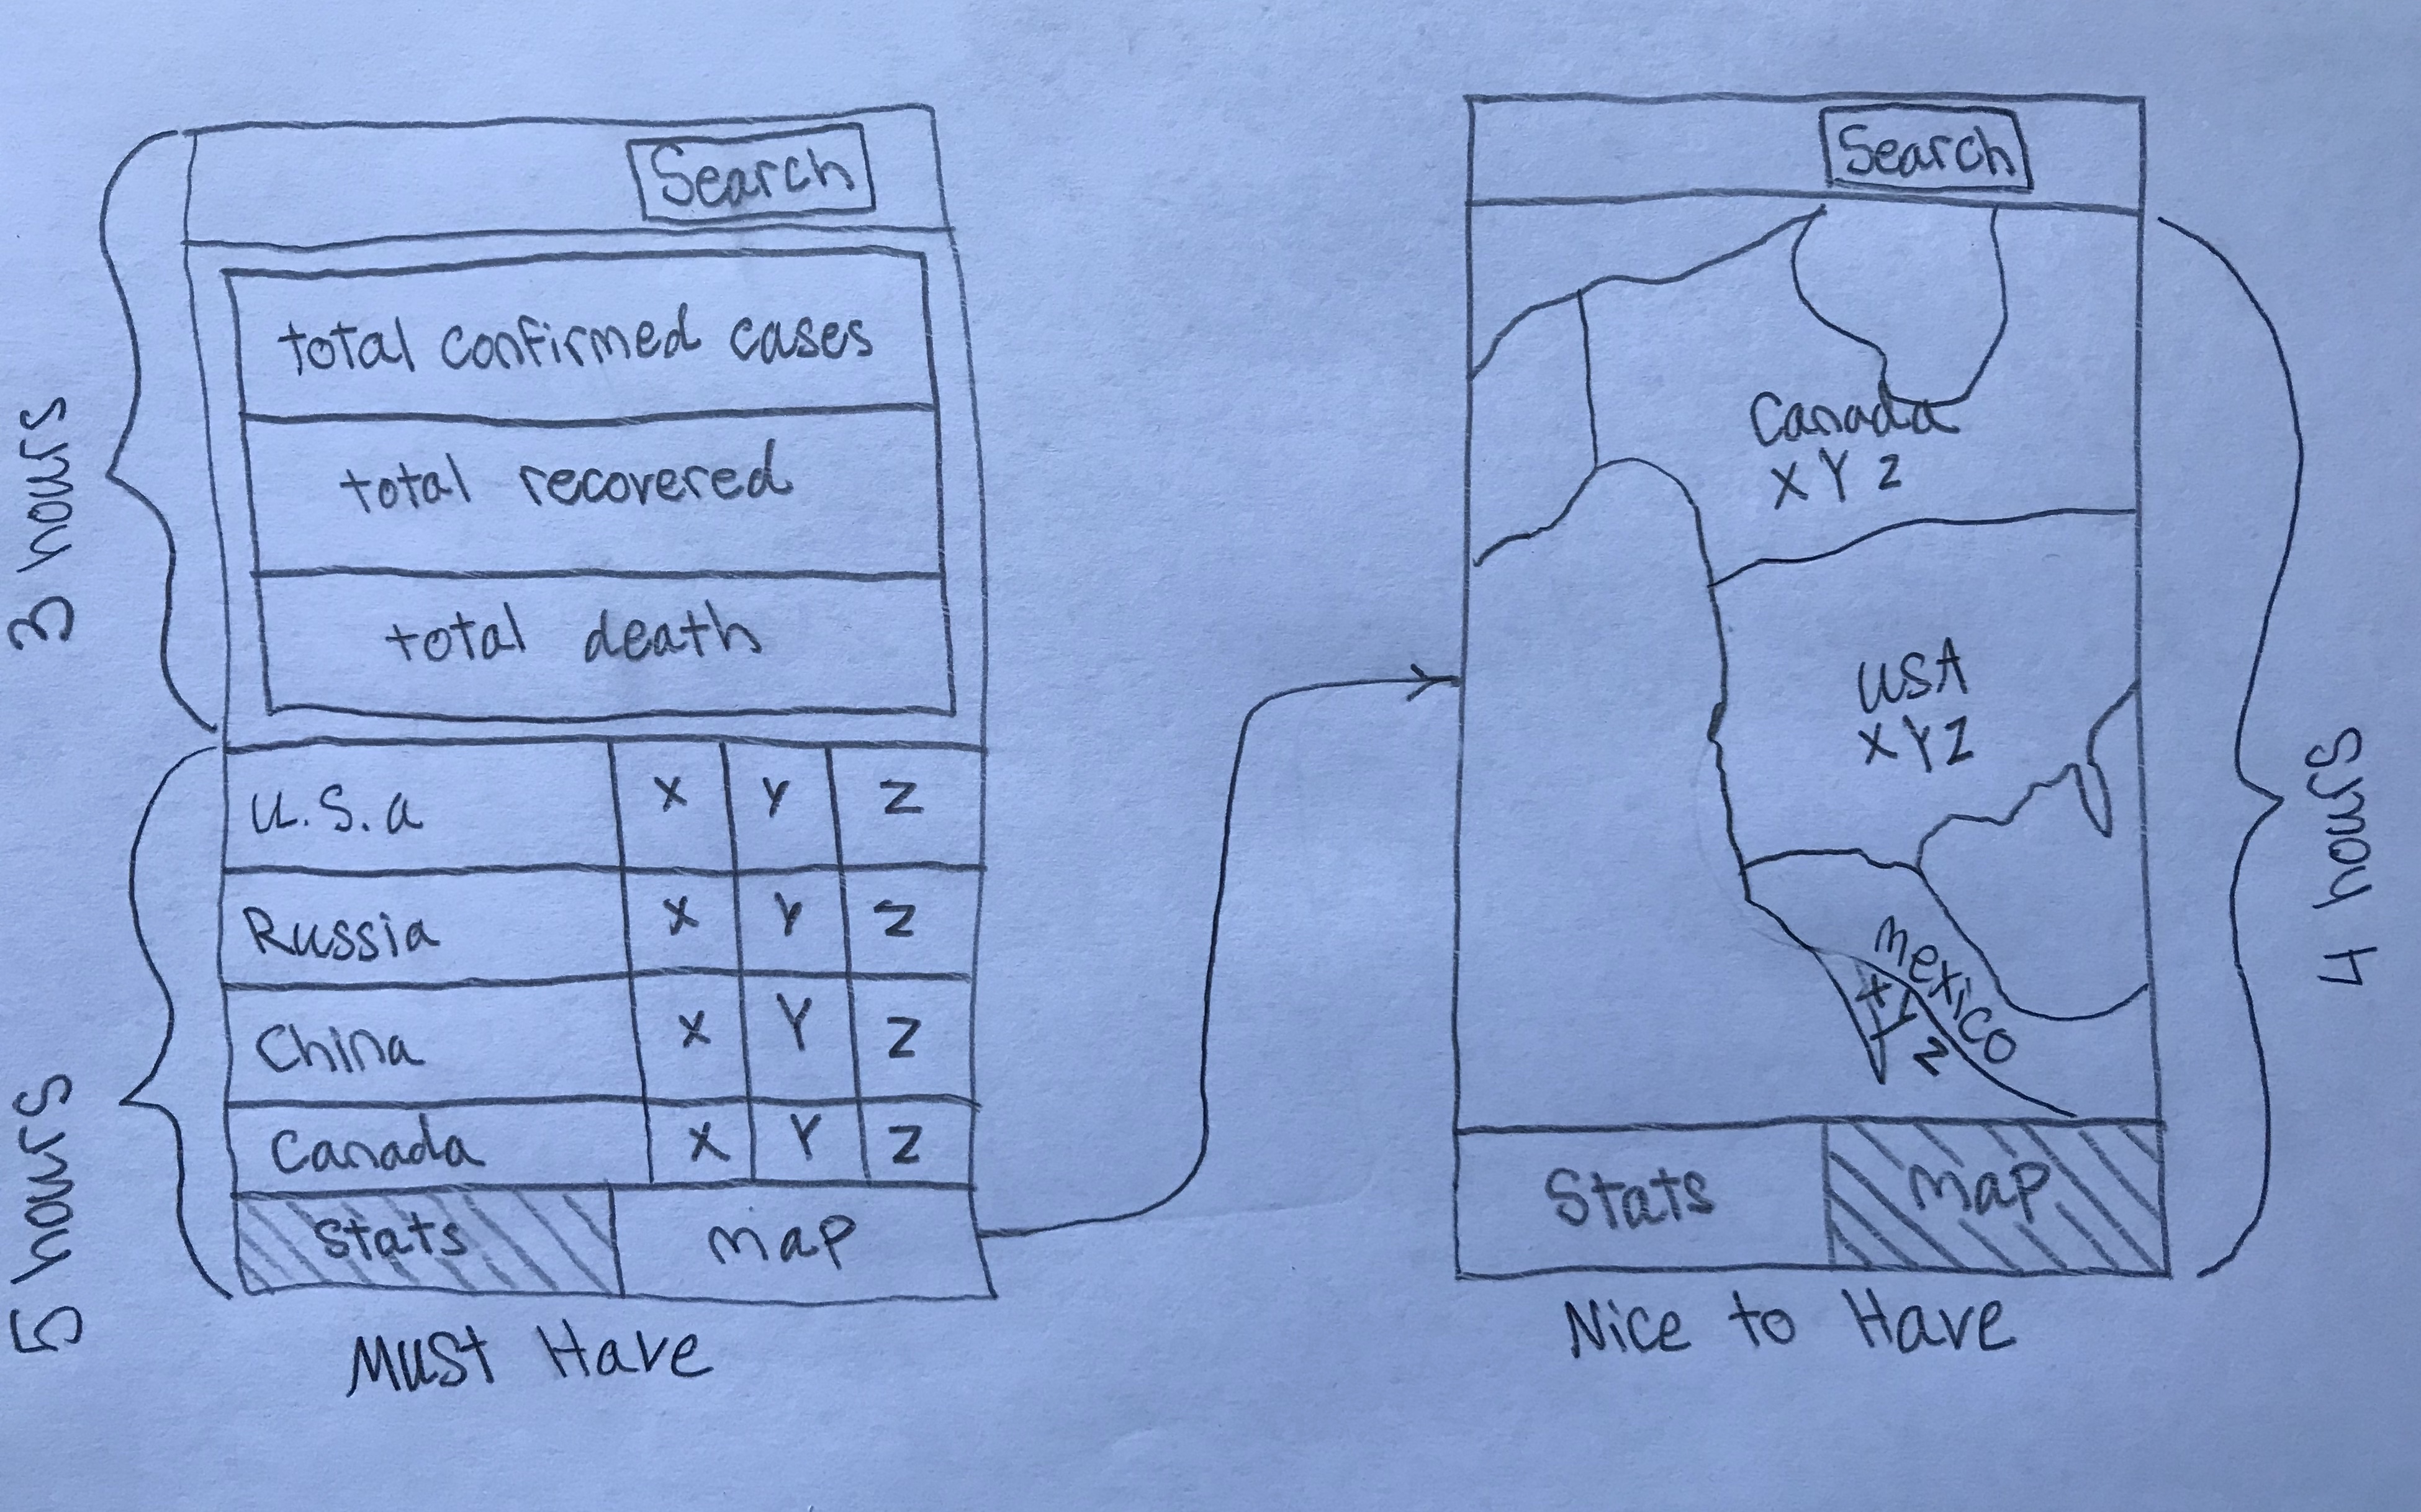 3 hours
5 hours
Search
total confirmed cases
total recovered
total death
U.S.a X Y Z
Russia X Y Z
China X Y Z
Canada X Y Z
Stats map
Must Have
Search
Canada
X Y Z
USA
X Y Z
Mexico
X Y Z
Stats map
Nice to Have
4 hours